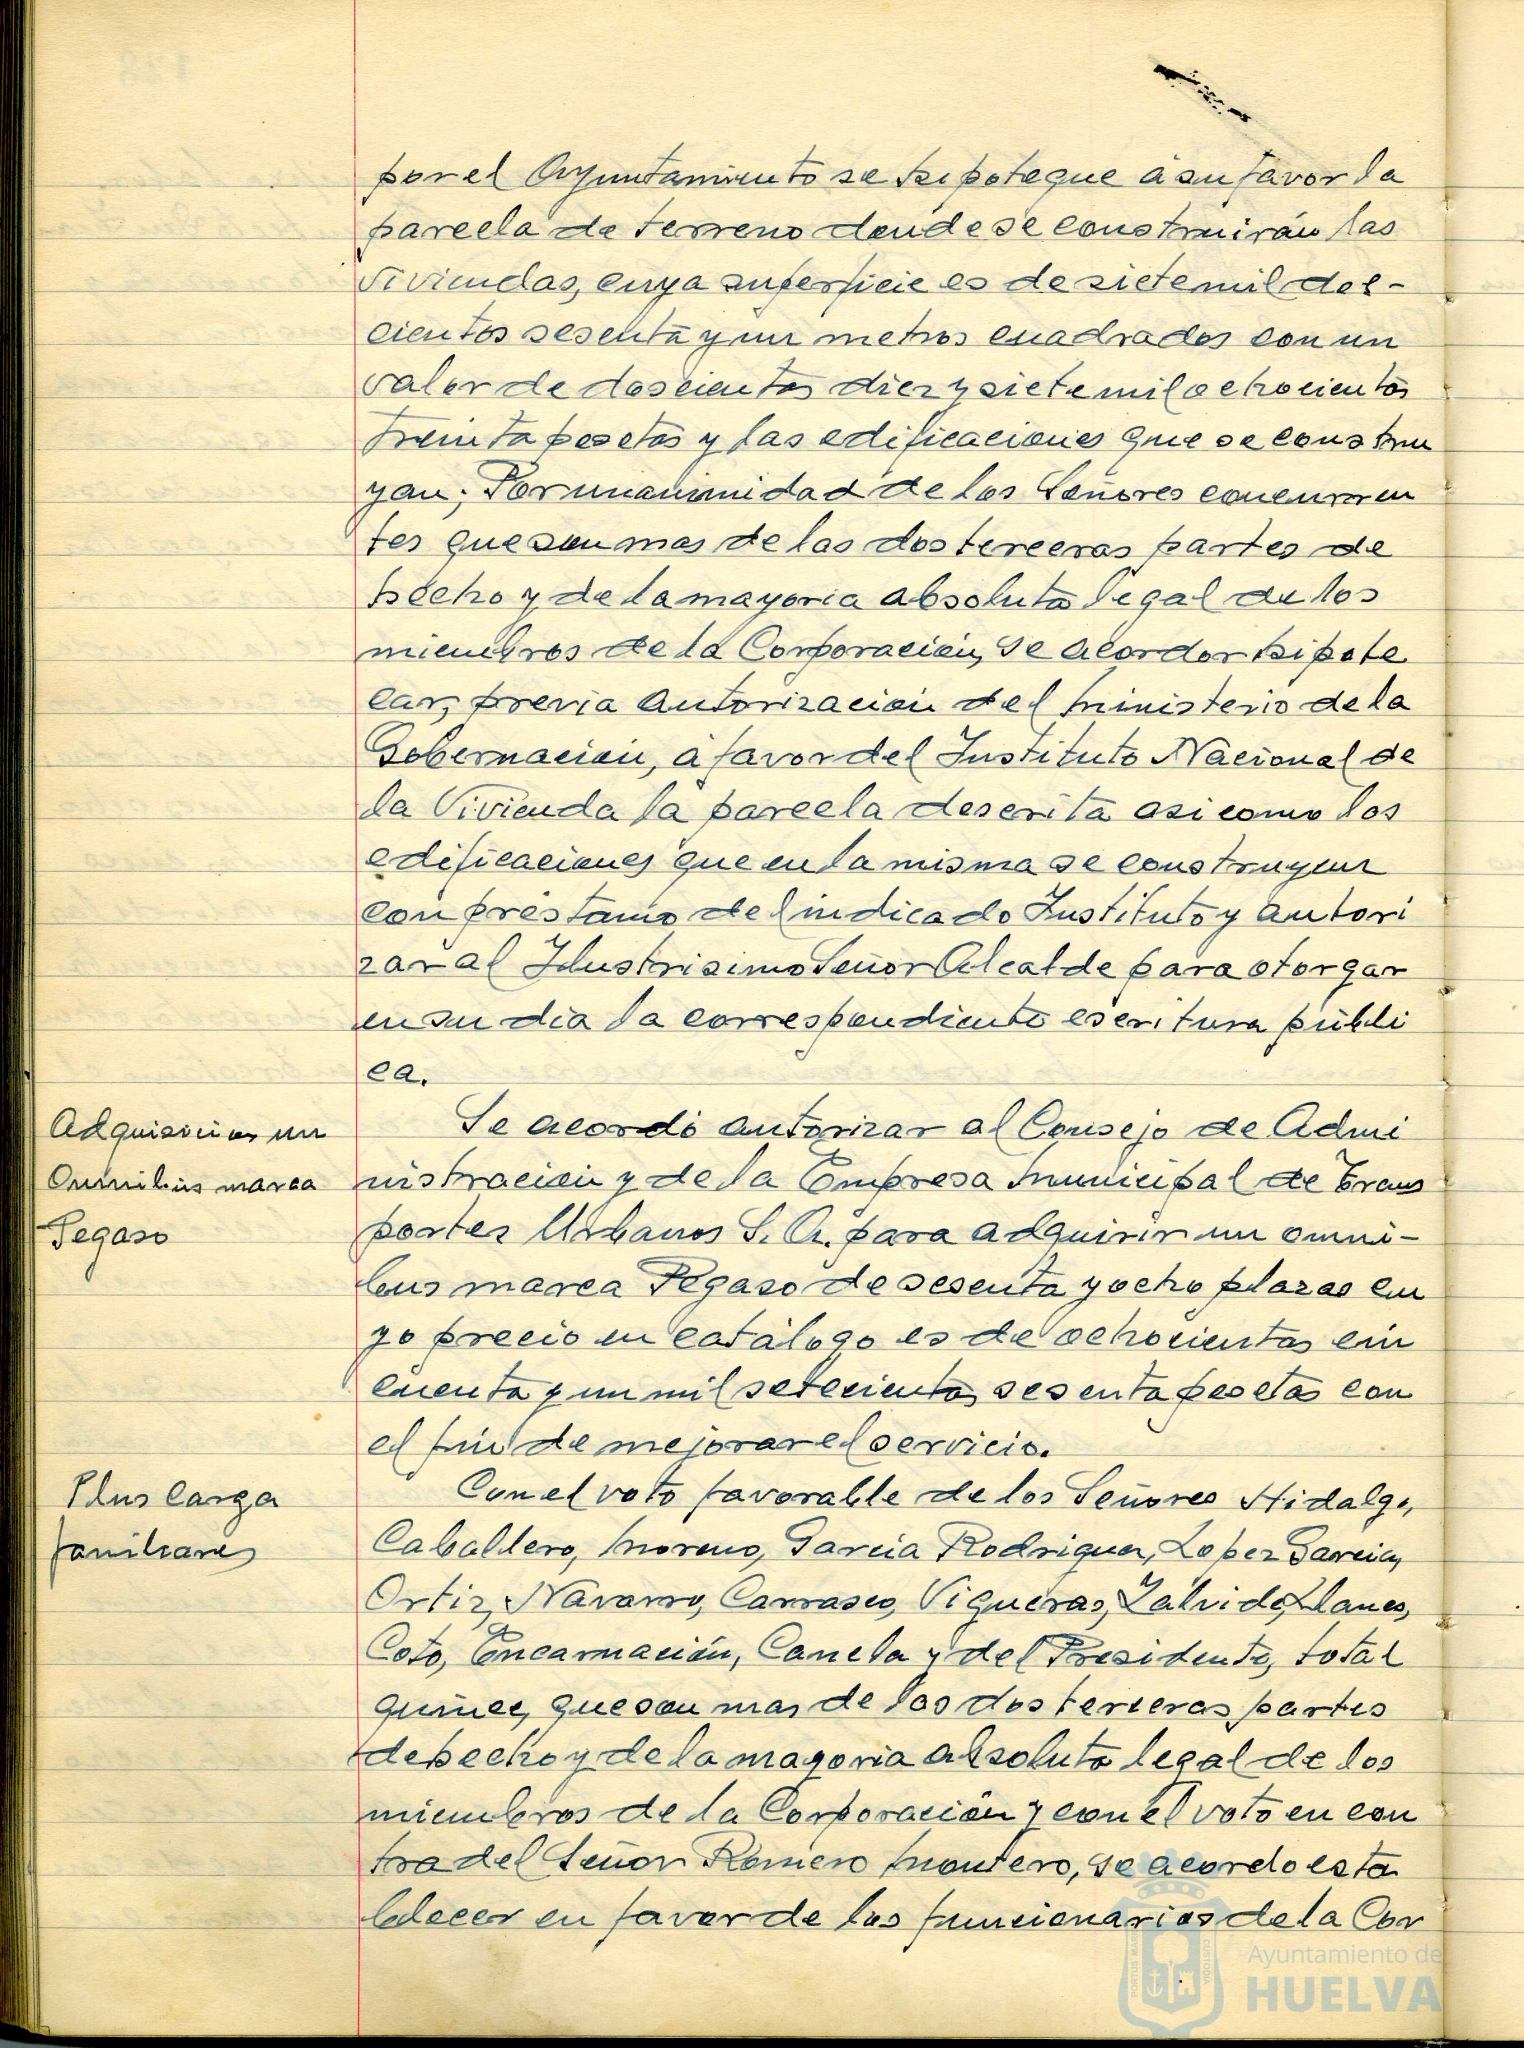 por el Ayuntamiento se hipoteque á su favor la
parcela de terreno donde se construirán las
viviendas, cuya superficie es de siete mil dos-
cientos sesenta y un metros cuadrados con un
valor de doscientas diez y siete mil ochocientas
treinta pesetas y las edificaciones que se constru
yan; Por unanimidad de los Señores concurren
tes que son mas de las dos terceras partes de
hecho y de la mayoria absoluta legal de los
miembros de la Corporación, se acordor hipote
car, previa autorización del Ministerio de la
Gobernación, á favor del Instituto Nacional de
la Vivienda la parcela descrita asi como las
edificaciones que en la misma se construyan
con préstamo del indicado Instituto y autori
zar al Ilustrisimo Señor Alcalde para otorgar
en su dia la correspondiente escritura públi
ca.
Adquisicion un
Omnibus marca
Pegaso
Se acordó autorizar al Consejo de Admi
nistración y de la Empresa Municipal de Trans
portes Urbanos S. A. para adquirir un omni-
bus marca Pegaso de sesenta y ocho plazas cu
yo precio en catálogo es de ochocientas cin
cuenta y un mil setecientas sesenta pesetas con
el fin de mejorar el servicio.
Plus carga
familiares
Con el voto favorable de los Señores Hidalgo,
Caballero, Moreno, Garcia Rodriguez, Lopez Garcia,
Ortiz, Navarro, Carrasco, Vigueras, Zalvide, Llanes,
Coto, Encarnación, Canela y del Presidente, total
quince, que son mas de las dos terceras partes
de hecho y de la mayoria absoluta legal de los
miembros de la Corporación y con el voto en con
tra del Señor Romero Montero, se acordo esta
blecer en favor de los funcionarios de la Cor
Ayuntamiento de
HUELVA